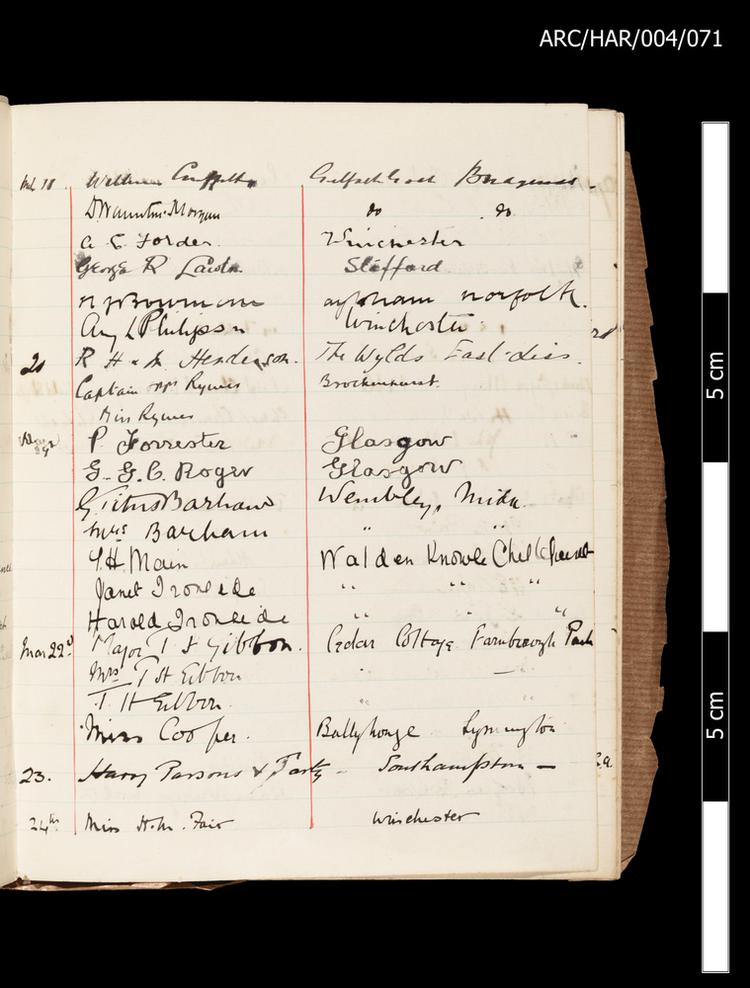 ARC/HAR/004/071
18 William Griffith Gilfach Goch Bridgend
D. Morgan do do
A C Forder. Winchester
George R Stafford
Bowman norfolk.
L Philipson Winchester
21 R H & M Henderson. The Wylds East Liss.
Captain Rymer Brockenhurst.
Miss Rymer
P. Forrester Glasgow
G. G. C. Roger Glasgow
G Titus Barham Wembley, Middx.
Mrs Barham " "
H Main Walden Knowle
Janet Ironside " " "
Harold Ironside " " "
Mar 22d Major T H Gibbon. Cedar Cottage Farnborough Park
Mrs T H Gibbon
T H Gibbon. " "
Miss Cooper. Lymington
23. Harry Parsons & Party – Southampton –
24th Miss H. M. Fair Winchester
5 cm
5 cm